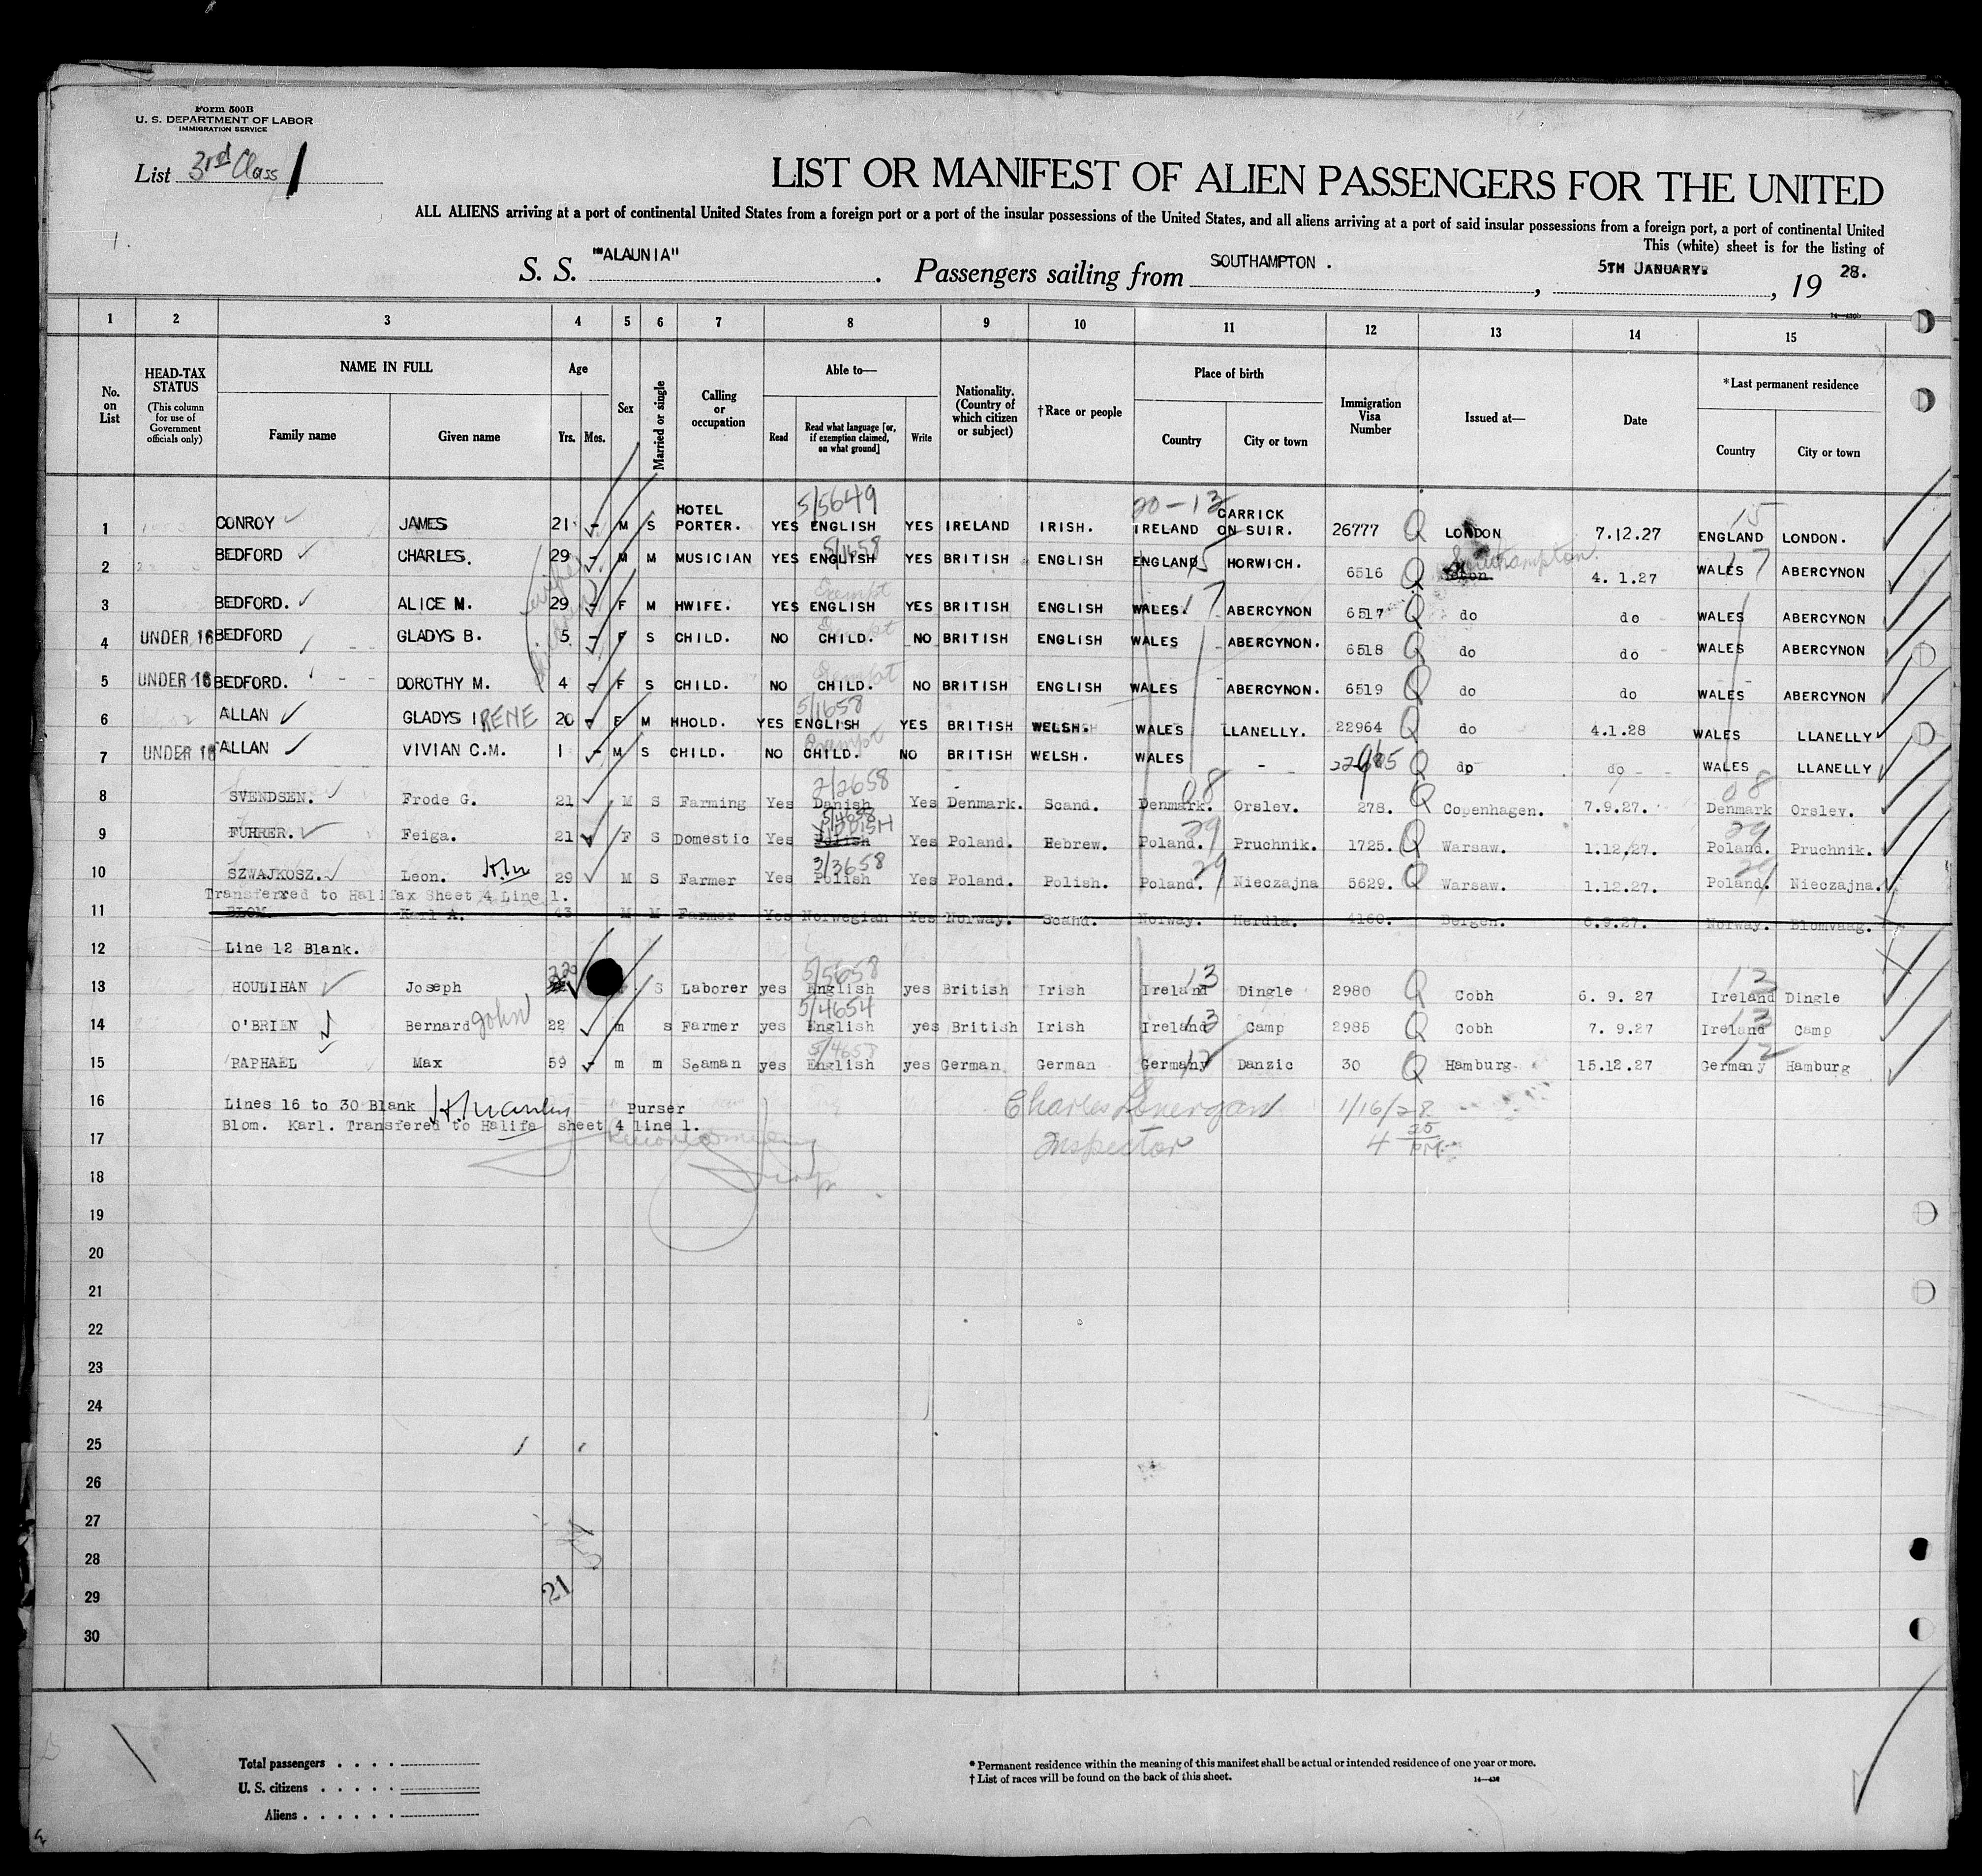 Form 500B
U. S. DEPARTMENT OF LABOR
IMMIGRATION SERVICE
List 3rd Class 1
LIST OR MANIFEST OF ALIEN PASSENGERS FOR THE UNITED
ALL ALIENS arriving at a port of continental United States from a foreign port or a port of the insular possessions of the United States, and all aliens arriving at a port of said insular possessions from a foreign port, a port of continental United
This (white) sheet is for the listing of
S. S. "ALAUNIA" . Passengers sailing from SOUTHAMPTON . , 5TH JANUARY. , 19 28.
1 2 3 4 5 6 7 8 9 10 11 12 13 14 15
No. on List HEAD-TAX STATUS (This column for use of Government officials only) NAME IN FULL Family name Given name Age Yrs. Mos. Sex Married or single Calling or occupation Able to— Read Read what language [or, if exemption claimed, on what ground] Write Nationality. (Country of which citizen or subject) †Race or people Place of birth Country City or town Immigration Visa Number Issued at— Date *Last permanent residence Country City or town
5/5649 20-13 15
1 CONROY JAMES 21 - M S HOTEL PORTER. YES ENGLISH YES IRELAND IRISH. IRELAND CARRICK ON SUIR. 26777 Q LONDON 7.12.27 ENGLAND LONDON.
5/1658 15 Southampton 17
2 BEDFORD CHARLES. 29 - M M MUSICIAN YES ENGLISH YES BRITISH ENGLISH ENGLAND HORWICH. 6516 Q 4. 1.27 WALES ABERCYNON
Exempt 17
3 BEDFORD. ALICE M. 29 - F M HWIFE. YES ENGLISH YES BRITISH ENGLISH WALES. ABERCYNON 6517 Q do do WALES ABERCYNON
Exempt
4 UNDER 16 BEDFORD GLADYS B. 5 - F S CHILD. NO CHILD. NO BRITISH ENGLISH WALES ABERCYNON. 6518 Q do do WALES ABERCYNON
Exempt
5 UNDER 16 BEDFORD. DOROTHY M. 4 - F S CHILD. NO CHILD. NO BRITISH ENGLISH WALES ABERCYNON. 6519 Q do do WALES ABERCYNON
5/1658
6 ALLAN GLADYS IRENE 20 - F M HHOLD. YES ENGLISH YES BRITISH WELSH. WALES LLANELLY. 22964 Q do 4.1.28 WALES LLANELLY
Exempt
7 UNDER 16 ALLAN VIVIAN C.M. 1 - M S CHILD. NO CHILD. NO BRITISH WELSH. WALES - 22965 Q do do WALES LLANELLY
2/2658 08 08
8 SVENDSEN. Frode G. 21 M S Farming Yes Danish Yes Denmark. Scand. Denmark. Orslev. 278. Q Copenhagen. 7.9.27. Denmark Orslev.
5/4658 YIDDISH 29 29
9 FUHRER. Feiga. 21 F S Domestic Yes Polish Yes Poland. Hebrew. Poland. Pruchnik. 1725. Q Warsaw. 1.12.27. Poland. Pruchnik.
3/3658 29 29
10 SZWAJKOSZ. Leon. 29 M S Farmer Yes Polish Yes Poland. Polish. Poland. Nieczajna 5629. Q Warsaw. 1.12.27. Poland. Nieczajna.
Transferred to Halifax Sheet 4 Line 1.
11 BLOM. Karl A. 43 M M Farmer Yes Norwegian Yes Norway. Scand. Norway. Herdla. 4160. Bergen. 6.9.27. Norway. Blomvaag.
12 Line 12 Blank.
5/5658 13 13
13 HOULIHAN Joseph S Laborer yes English yes British Irish Ireland Dingle 2980 Q Cobh 6. 9. 27 Ireland Dingle
5/4654 13 13
14 O'BRIEN Bernard John 22 m s Farmer yes English yes British Irish Ireland Camp 2985 Q Cobh 7. 9.27 Ireland Camp
5/4658 12 12
15 RAPHAEL Max 59 - m m Seaman yes English yes German German Germany Danzic 30 Q Hamburg 15.12.27 Germany Hamburg
16 Lines 16 to 30 Blank Purser Charles Lonergan 1/16/28
Blom. Karl. Transfered to Halifa sheet 4 line 1.
17 Inspector 4 25 PM
18
19
20
21
22
23
24
25
26
27
28
29
21
30
Total passengers . . . .
U. S. citizens . . . . .
Aliens . . . . . .
* Permanent residence within the meaning of this manifest shall be actual or intended residence of one year or more.
† List of races will be found on the back of this sheet.
14—430